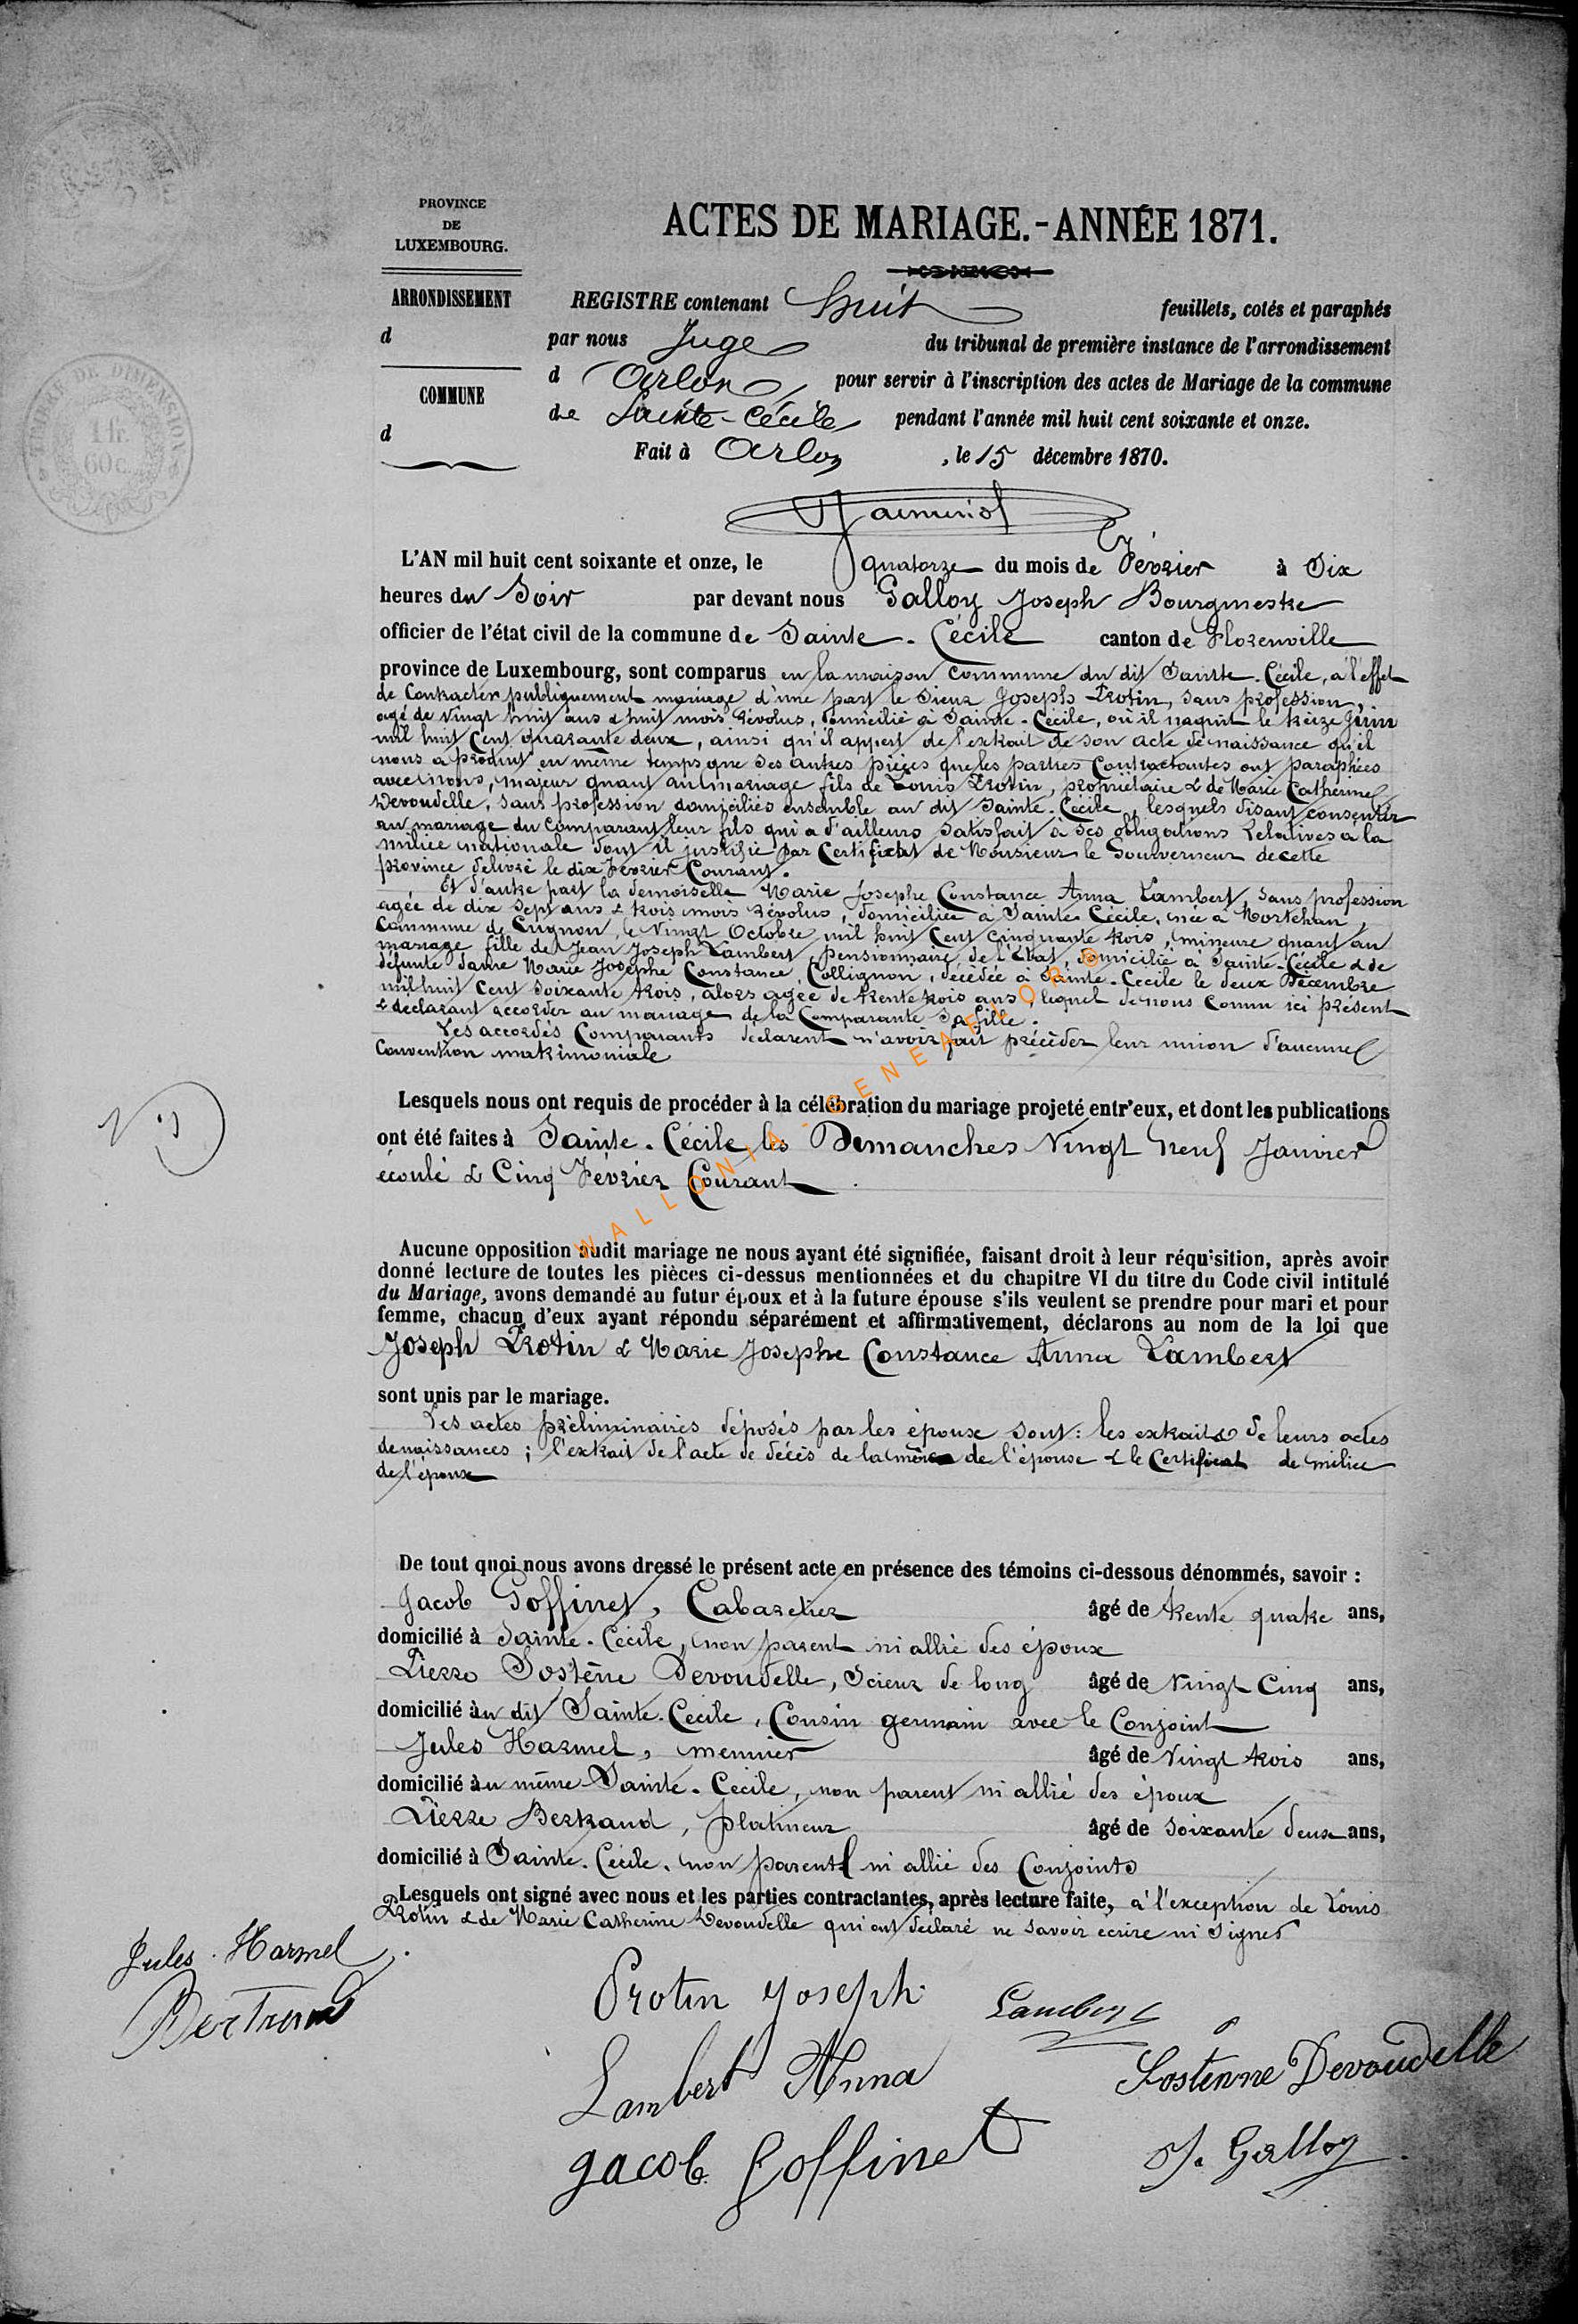 PROVINCE
DE
LUXEMBOURG.
ARRONDISSEMENT
d
COMMUNE
d
TIMBRE DE DIMENSION
1 fr.
60 c.
ACTES DE MARIAGE.-ANNÉE 1871.
REGISTRE contenant huit feuillets, cotés et paraphés
par nous Juge du tribunal de première instance de l'arrondissement
d Arlon pour servir à l'inscription des actes de Mariage de la commune
de Sainte-Cécile pendant l'année mil huit cent soixante et onze.
Fait à Arlon, le 15 décembre 1870.
L'AN mil huit cent soixante et onze, le quatorze du mois de Février à Dix
heures du Soir par devant nous Galloy Joseph Bourgmestre
officier de l'état civil de la commune de Sainte-Cécile canton de Florenville
province de Luxembourg, sont comparus en la maison commune du dit Sainte-Cécile, à l'effet
de Contracter publiquement mariage d'une part le Sieur Joseph Protin, sans profession,
agé de Vingt huit ans & huit mois révolus, domicilié à Sainte-Cécile, où il naquit le treize Juin
mil huit Cent quarante deux, ainsi qu'il appert de l'extrait de son acte de naissance qu'il
nous a produit en même temps que des autres pièces que les parties Contractantes ont paraphées
avec nous, majeur quant au mariage fils de Louis Protin, propriétaire & de Marie Catherine
Devoudelle, sans profession domiciliés ensemble au dit Sainte-Cécile, lesquels disant consentir
au mariage du Comparant leur fils qui a d'ailleurs satisfait à ses obligations Relatives à la
milice nationale dont il justifie par Certificat de Monsieur le Gouverneur de cette
province délivré le dix Février Courant.
Et d'autre part la demoiselle Marie Josephe Constance Anna Lambert, sans profession
agée de dix sept ans & trois mois révolus, domiciliée à Sainte Cécile, née à Mortehan,
Commune de Cugnon, le Vingt Octobre mil huit Cent Cinquante trois, mineure quant au
mariage fille de Jean Joseph Lambert, pensionnaire de l'Etat, domicilié à Sainte-Cécile & de
défunte dame Marie Josephe Constance Collignon, décédée à Sainte-Cécile le deux Décembre
mil huit Cent Soixante trois, alors agée de trente trois ans, lequel de nous Connu ici présent
& déclarant accorder au mariage de la Comparante Sa fille.
Les accordés Comparants déclarent n'avoir fait précéder leur union d'aucune
Convention matrimoniale
Lesquels nous ont requis de procéder à la célébration du mariage projeté entr'eux, et dont les publications
ont été faites à Sainte-Cécile les Dimanches Vingt Neuf Janvier
écoulé & Cinq Février Courant.
Aucune opposition audit mariage ne nous ayant été signifiée, faisant droit à leur réquisition, après avoir
donné lecture de toutes les pièces ci-dessus mentionnées et du chapitre VI du titre du Code civil intitulé
du Mariage, avons demandé au futur époux et à la future épouse s'ils veulent se prendre pour mari et pour
femme, chacun d'eux ayant répondu séparément et affirmativement, déclarons au nom de la loi que
Joseph Protin & Marie Josephe Constance Anna Lambert
sont unis par le mariage.
Les actes préliminaires déposés par les époux sont : les extraits de leurs actes
de naissances ; l'extrait de l'acte de décès de la mère de l'épouse & le Certificat de milice
de l'époux
De tout quoi nous avons dressé le présent acte en présence des témoins ci-dessous dénommés, savoir :
Jacob Goffinet, Cabaretier âgé de trente quatre ans,
domicilié à Sainte-Cécile, non parent ni allié des époux
Pierre Sostène Devoudelle, Scieur de long âgé de Vingt Cinq ans,
domicilié au dit Sainte-Cécile, Cousin germain avec le Conjoint
Jules Harmel, meunier âgé de Vingt trois ans,
domicilié au même Sainte-Cécile, non parent ni allié des époux
Pierre Bertrand, platineur âgé de soixante deux ans,
domicilié à Sainte-Cécile, non parent ni allié des Conjoints
Lesquels ont signé avec nous et les parties contractantes, après lecture faite, à l'exception de Louis
Protin & de Marie Catherine Devoudelle qui ont déclaré ne savoir écrire ni signer
Jules Harmel
Bertrand
Protin Joseph
Lambert
Lambert Anna
Sostenne Devoudelle
Jacob Goffinet
J. Galloy
WALLONIA-GENEALO